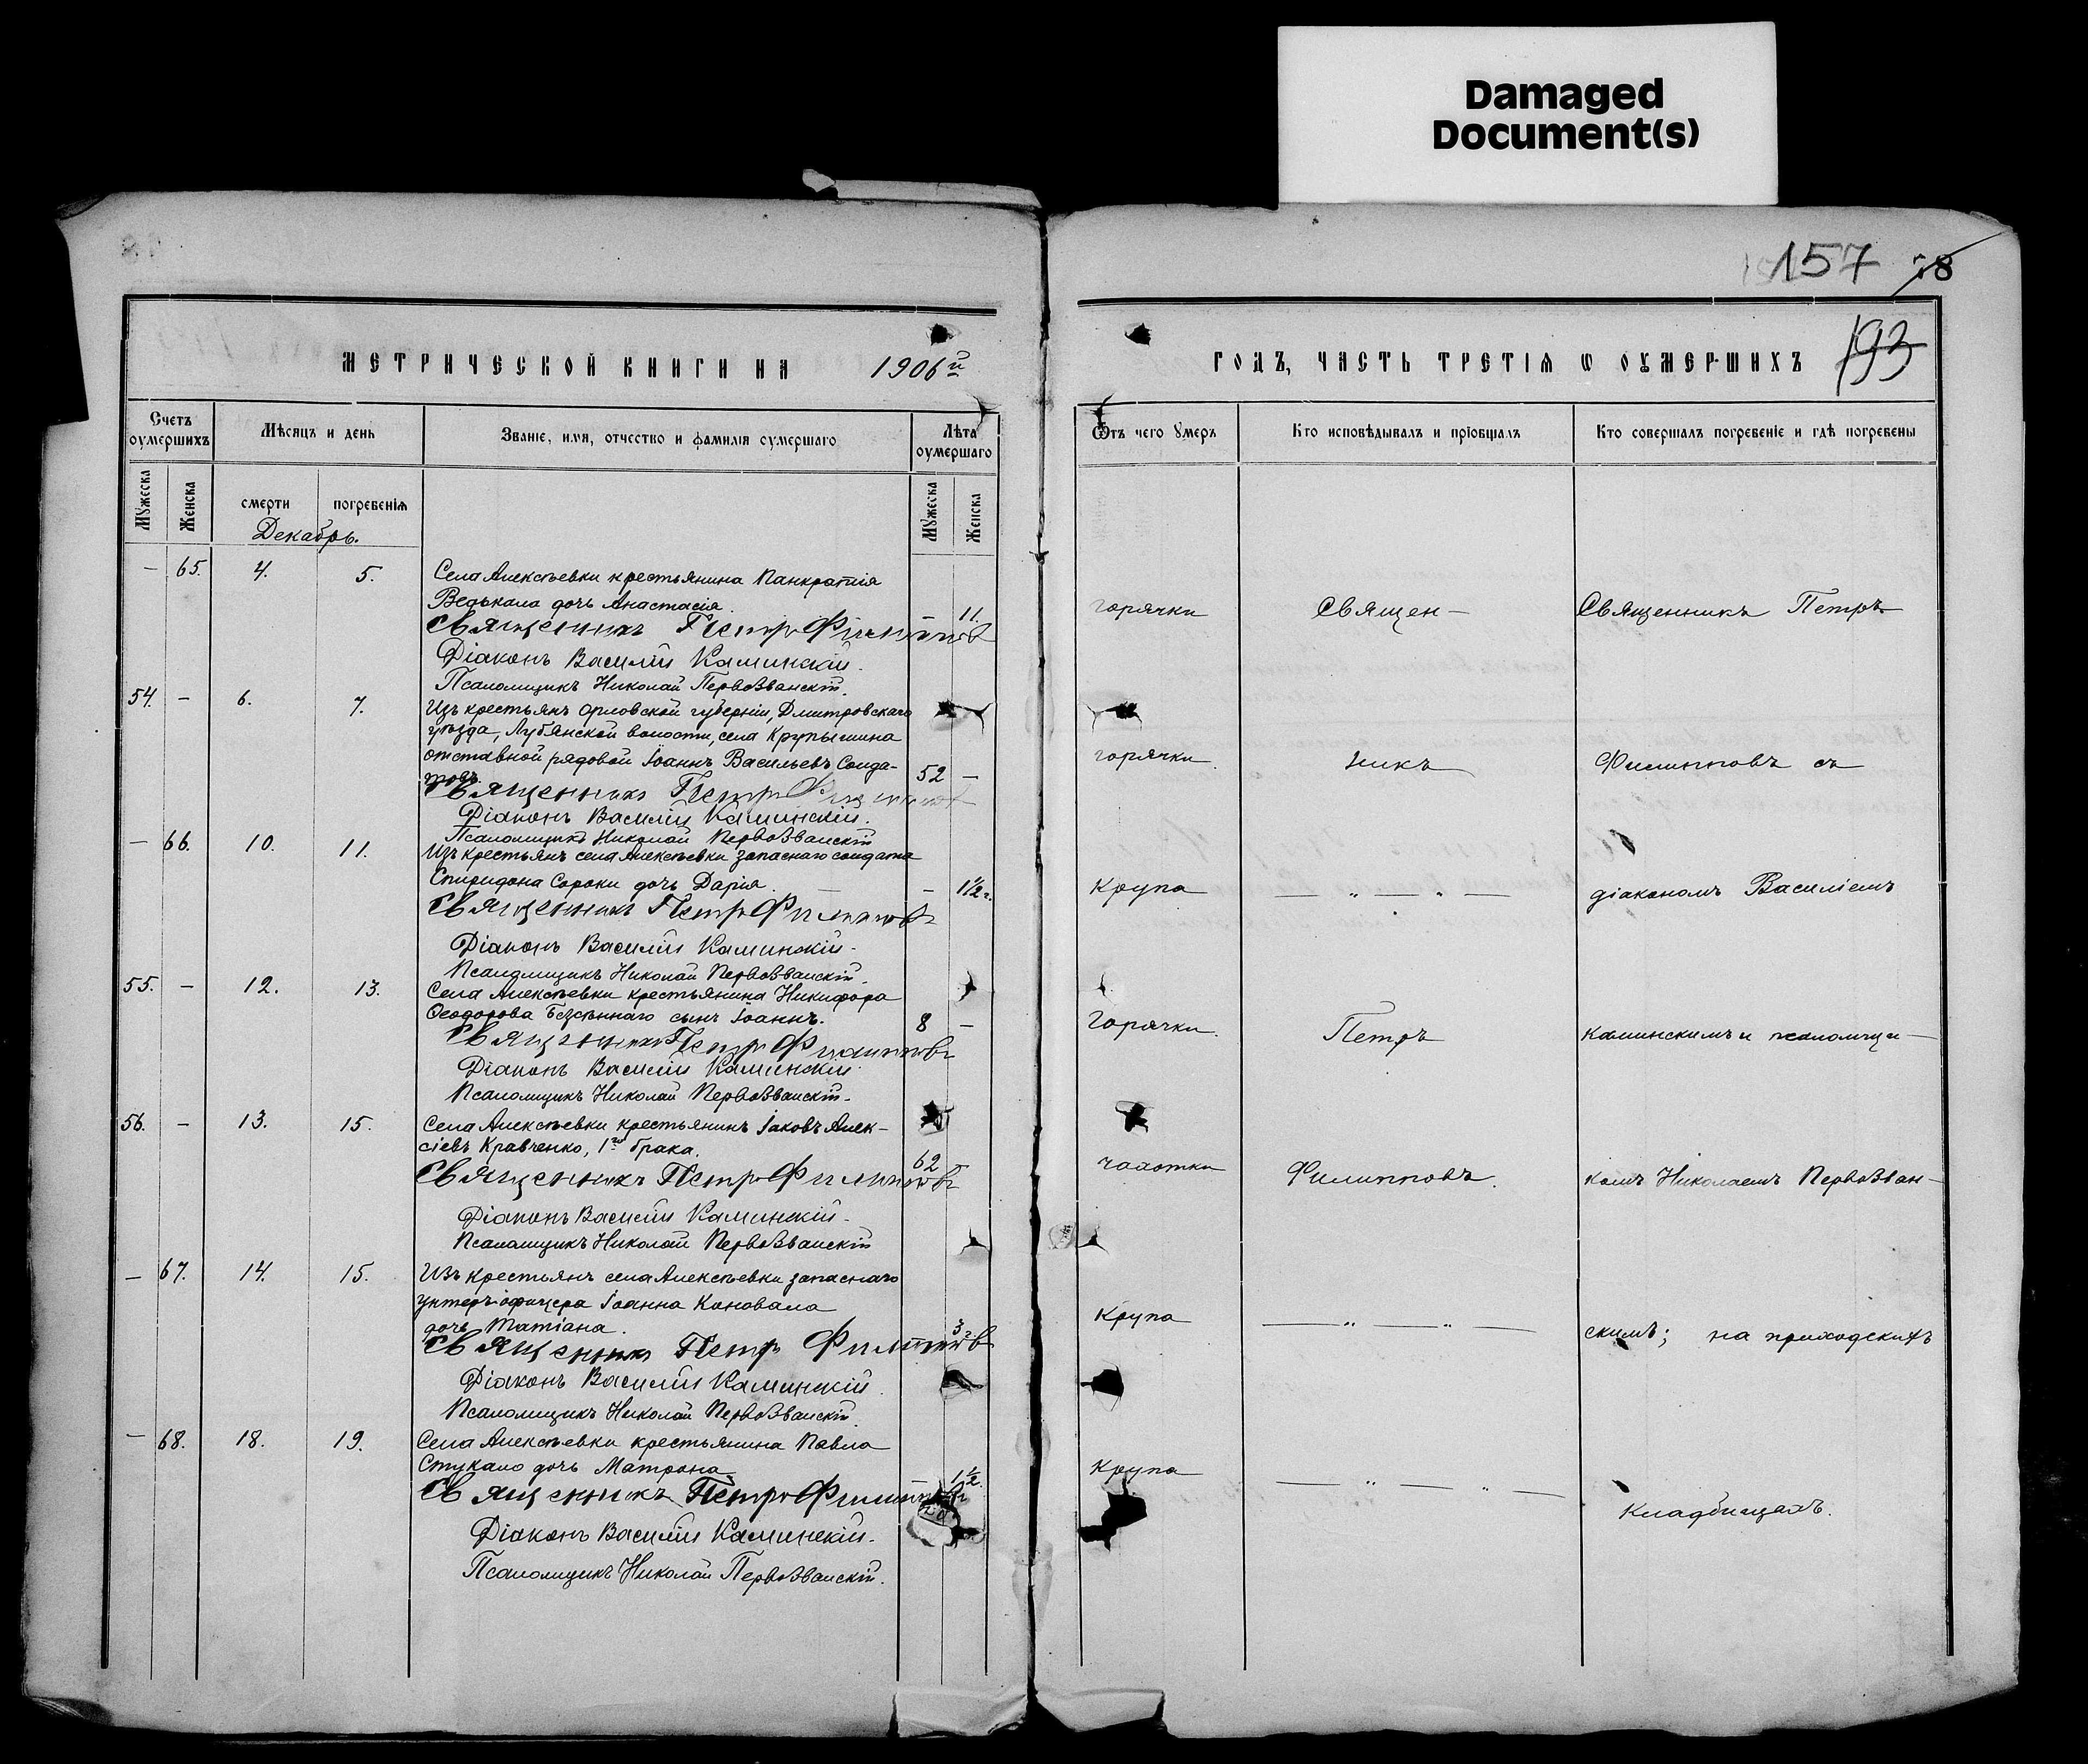 Damaged
Document(s)
157
193
МЕТРИЧЕСКОЙ КНИГИ НА 1906й
Счетъ оумершихъ
Мѣсяцъ и день
Званіе, имя, отчество и фамилія оумершаго
Лѣта оумершаго
Мужеска
Женска
смерти
погребенія
Мужеска
Женска
Декабрь.
— 65. 4. 5. Села Алексѣевки крестьянина Панкратія
Ведькала дочь Анастасія. — 11.
Священникъ Петръ Филипповъ
Діаконъ Василій Каминскій.
Псаломщикъ Николай Первозванскій.
54. — 6. 7. Изъ крестьянъ Орловской губерніи, Дмитровскаго
уѣзда, Лубянской волости, села Крупышина
отставной рядовой Іоаннъ Васильевъ Солда-
товъ. 52 —
Священникъ Петръ Филипповъ
Діаконъ Василій Каминскій.
Псаломщикъ Николай Первозванскій
— 66. 10. 11. Изъ крестьянъ села Алексѣевки запаснаго солдата
Спиридона Сороки дочь Дарія. — 1½ г.
Священникъ Петръ Филипповъ
Діаконъ Василій Каминскій.
Псаломщикъ Николай Первозванскій.
55. — 12. 13. Села Алексѣевки крестьянина Никифора
Ѳеодорова Безсѣннаго сынъ Іоаннъ. 8 —
Священникъ Петръ Филипповъ
Діаконъ Василій Каминскій.
Псаломщикъ Николай Первозванскій.
56. — 13. 15. Села Алексѣевки крестьянинъ Іаковъ Алек-
сіевъ Кравченко, 1го брака. 62
Священникъ Петръ Филипповъ
Діаконъ Василій Каминскій.
Псаломщикъ Николай Первозванскій
— 67. 14. 15. Изъ крестьянъ села Алексѣевки запаснаго
унтеръ-офицера Іоанна Коновала
дочь Татіана. 3 г.
Священникъ Петръ Филипповъ
Діаконъ Василій Каминскій.
Псаломщикъ Николай Первозванскій.
— 68. 18. 19. Села Алексѣевки крестьянина Павла
Стукало дочь Матрона. — 1½.
Священникъ Петръ Филипповъ
Діаконъ Василій Каминскій.
Псаломщикъ Николай Первозванскій.
ГОДЪ, ЧАСТЬ ТРЕТІЯ Ѡ ОУМЕРШИХЪ
Ѿтъ чего умеръ
Кто исповѣдывалъ и пріобщалъ
Кто совершалъ погребеніе и гдѣ погребены
горячки Священ— Священникъ Петръ
горячки. никъ Филипповъ съ
крупа — „ — „ — діакономъ Василіемъ
Горячки. Петръ Каминскимъ и псаломщи—
чахотки Филипповъ. комъ Николаемъ Первозван—
крупа — „ — „ — скимъ; на приходскихъ
крупа — „ — „ —
кладбищахъ.